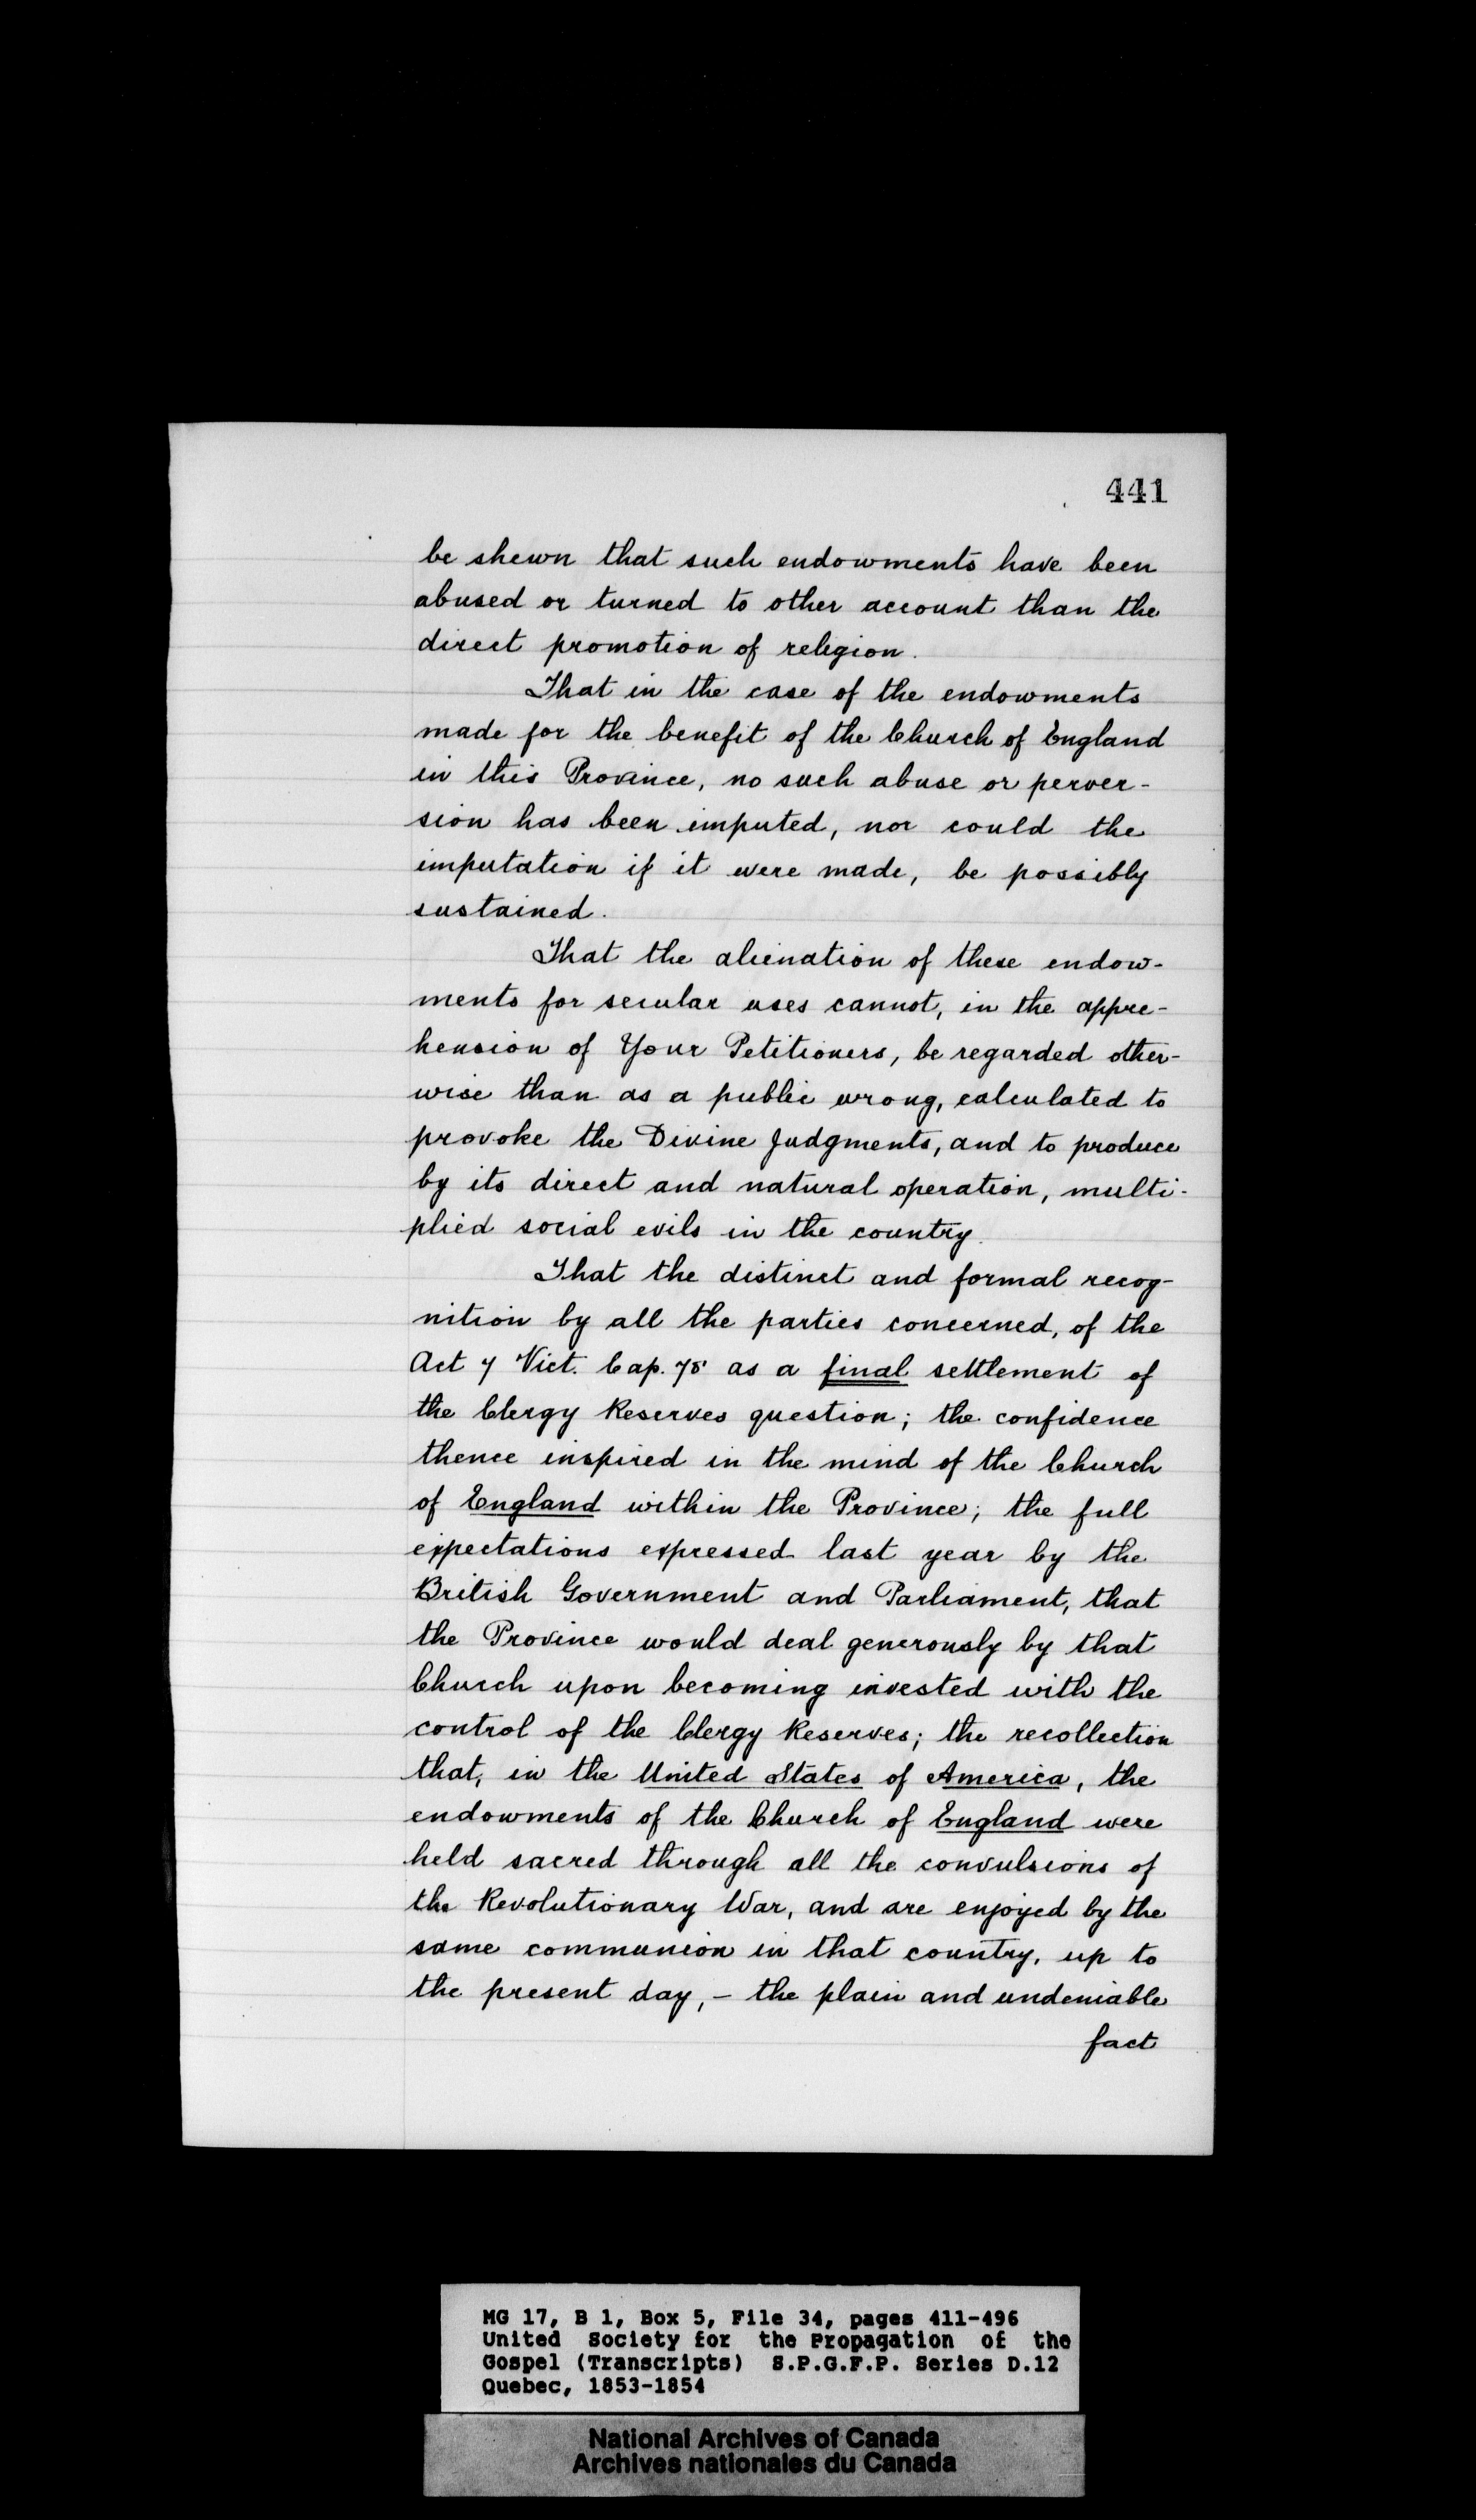 441
be shewn that such endowments have been
abused or turned to other account than the
direct promotion of religion.
That in the case of the endowments
made for the benefit of the Church of England
in this Province, no such abuse or perver-
sion has been imputed, nor could the
imputation if it were made, be possibly
sustained.
That the alienation of these endow-
ments for secular uses cannot, in the appre-
hension of Your Petitioners, be regarded other-
wise than as a public wrong, calculated to
provoke the Divine Judgments, and to produce
by its direct and natural operation, multi-
plied social evils in the country.
That the distinct and formal recog-
nition by all the parties concerned, of the
Act 7 Vict. Cap. 78 as a final settlement of
the Clergy Reserves question; the confidence
thence inspired in the mind of the Church
of England within the Province; the full
expectations expressed last year by the
British Government and Parliament, that
the Province would deal generously by that
Church upon becoming invested with the
control of the Clergy Reserves; the recollection
that, in the United States of America, the
endowments of the Church of England were
held sacred through all the convulsions of
the Revolutionary War, and are enjoyed by the
same communion in that country, up to
the present day, - the plain and undeniable
fact
MG 17, B 1, Box 5, File 34, pages 411-496
United Society for the Propagation of the
Gospel (Transcripts) S.P.G.F.P. Series D.12
Quebec, 1853-1854
National Archives of Canada
Archives nationales du Canada